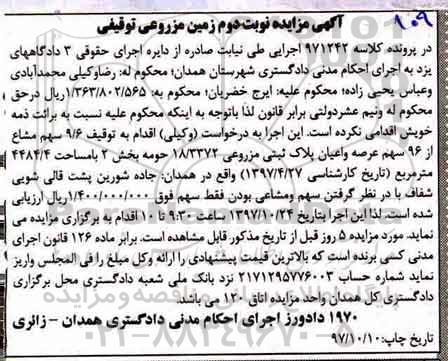 ۸۰۹
آگهی مزایده نوبت دوم زمین مزروعی توقیفی
در پرونده کلاسه ۹۷۱۲۴۲ اجرایی طی نیابت صادره از دایره اجرای حقوقی ۳ دادگاههای
یزد به اجرای احکام مدنی دادگستری شهرستان همدان؛ محکوم له: رضاوکیلی محمدآبادی
وعباس یحیی زاده؛ محکوم علیه: ایرج خضریان؛ محکوم به: ۱/۳۶۳/۸۰۲/۵۶۵ریال درحق
محکوم له ونیم عشردولتی برابر قانون لذا باتوجه به اینکه محکوم علیه نسبت به برائت ذمه
خویش اقدامی نکرده است. این اجرا به درخواست (وکیلی) اقدام به توقیف ۹/۶ سهم مشاع
از ۹۶ سهم عرصه واعیان پلاک ثبتی مزروعی ۱۸/۳۳۷۲ حومه بخش ۲ بامساحت ۴۴۸۴/۴
مترمربع (تاریخ کارشناسی ۱۳۹۷/۴/۲۷) واقع در همدان: جاده شورین پشت قالی شویی
شفاف با در نظر گرفتن سهم ومشاعی بودن فقط سهم فوق ۱/۴۰۰/۰۰۰/۰۰۰ریال ارزیابی
شده است. لذا این اجرا بتاریخ ۱۳۹۷/۱۰/۲۴ ساعت ۹:۳۰ تا ۱۰ اقدام به برگزاری مزایده می
نماید. مورد مزایده ۵ روز قبل از تاریخ مذکور قابل مشاهده است. برابر ماده ۱۲۶ قانون اجرای
مدنی کسی برنده است که بالاترین قیمت پیشنهادی را ارائه وکل مبلغ را فی المجلس واریز
نماید شماره حساب ۲۱۷۱۲۹۵۷۷۶۰۰۳ نزد بانک ملی شعبه دادگستری محل برگزاری
دادگستری کل همدان واحد مزایده اتاق ۱۲۰ می باشد.
۱۹۷۰ دادورز اجرای احکام مدنی دادگستری همدان - زائری
تاریخ چاپ: ۹۷/۱۰/۱۰
۰۲۱-۸۸۳۴۹۶۷۰-۵